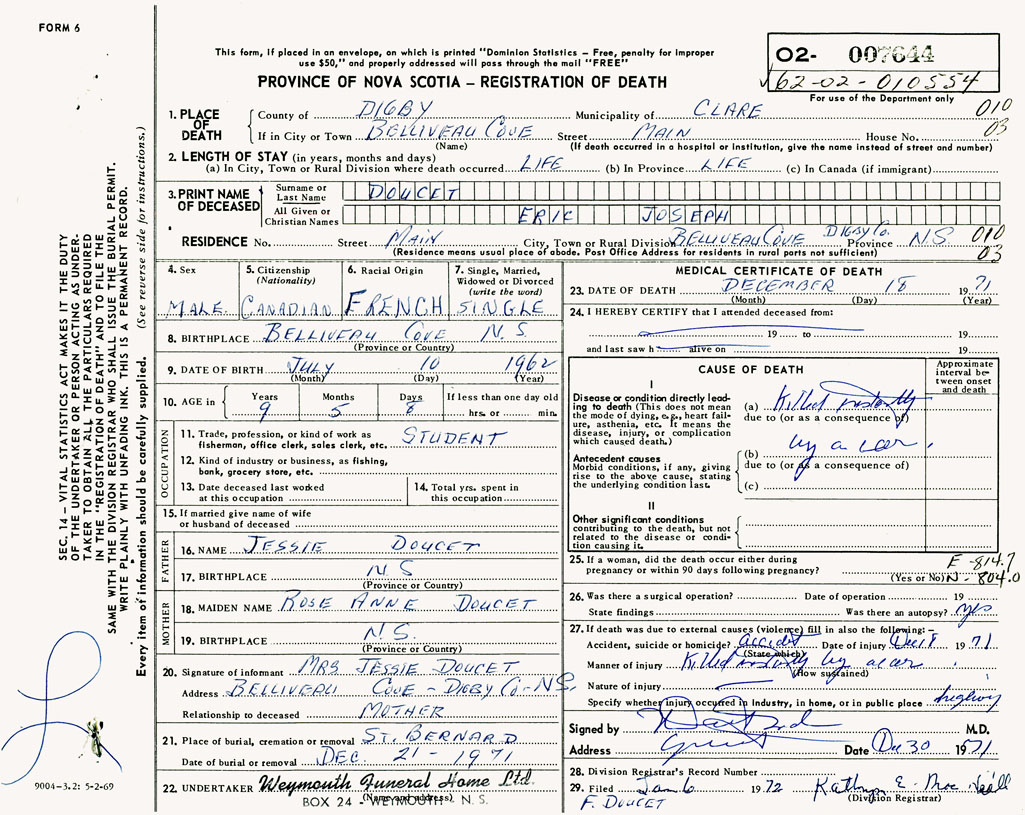 FORM 6
This form, if placed in an envelope, on which is printed "Dominion Statistics – Free, penalty for improper
use $50," and properly addressed will pass through the mail "FREE"
PROVINCE OF NOVA SCOTIA – REGISTRATION OF DEATH
02- 007644
62-02-010554
For use of the Department only
1. PLACE OF DEATH
County of DIGBY Municipality of CLARE 010
If in City or Town BELLIVEAU COVE Street MAIN House No. 03
(Name) (If death occurred in a hospital or institution, give the name instead of street and number)
2. LENGTH OF STAY (in years, months and days)
(a) In City, Town or Rural Division where death occurred LIFE (b) In Province LIFE (c) In Canada (if immigrant)
3. PRINT NAME OF DECEASED
Surname or Last Name DOUCET
All Given or Christian Names ERIC JOSEPH
RESIDENCE No. Street MAIN City, Town or Rural Division BELLIVEAU COVE DIGBY Co. Province N.S. 010
(Residence means usual place of abode. Post Office Address for residents in rural ports not sufficient) 03
4. Sex
MALE
5. Citizenship
(Nationality)
CANADIAN
6. Racial Origin
FRENCH
7. Single, Married,
Widowed or Divorced
(write the word)
SINGLE
8. BIRTHPLACE BELLIVEAU COVE N.S.
(Province or Country)
9. DATE OF BIRTH JULY 10 1962
(Month) (Day) (Year)
10. AGE in Years Months Days If less than one day old
9 5 8 hrs. or min.
OCCUPATION
11. Trade, profession, or kind of work as
fisherman, office clerk, sales clerk, etc. STUDENT
12. Kind of industry or business, as fishing,
bank, grocery store, etc.
13. Date deceased last worked
at this occupation
14. Total yrs. spent in
this occupation
15. If married give name of wife
or husband of deceased
FATHER
16. NAME JESSIE DOUCET
17. BIRTHPLACE N.S
(Province or Country)
MOTHER
18. MAIDEN NAME ROSE ANNE DOUCET
19. BIRTHPLACE N.S.
(Province or Country)
20. Signature of informant MRS JESSIE DOUCET
Address BELLIVEAU COVE - DIGBY Co - NS.
Relationship to deceased MOTHER
21. Place of burial, cremation or removal ST. BERNARD
Date of burial or removal DEC. 21 - 1971
22. UNDERTAKER Weymouth Funeral Home Ltd.
(Name and address)
BOX 24 - WEYMOUTH, N. S.
MEDICAL CERTIFICATE OF DEATH
23. DATE OF DEATH DECEMBER 18 1971
(Month) (Day) (Year)
24. I HEREBY CERTIFY that I attended deceased from:
19 to 19
and last saw h alive on 19
CAUSE OF DEATH
Approximate
interval be-
tween onset
and death
I
Disease or condition directly lead-
ing to death (This does not mean
the mode of dying, e.g., heart fail-
ure, asthenia, etc. It means the
disease, injury, or complication
which caused death.)
(a) Killed instantly
due to (or as a consequence of)
by a car.
Antecedent causes
Morbid conditions, if any, giving
rise to the above cause, stating
the underlying condition last.
(b)
due to (or as a consequence of)
(c)
II
Other significant conditions
contributing to the death, but not
related to the disease or condi-
tion causing it.
25. If a woman, did the death occur either during
pregnancy or within 90 days following pregnancy?
(Yes or No)
E - 814.7
N - 804.0
26. Was there a surgical operation? Date of operation 19
State findings Was there an autopsy? yes
27. If death was due to external causes (violence) fill in also the following:–
Accident, suicide or homicide? accident Date of injury Dec 18 1971
(State which)
Manner of injury Killed instantly by a car.
(How sustained)
Nature of injury
Specify whether injury occurred in Industry, in home, or in public place highway
Signed by M.D.
Address Date Dec 30 1971
28. Division Registrar's Record Number
29. Filed Jan 6 1972 Kathryn E. Mac Neill
(Division Registrar)
F. DOUCET
SEC. 14 – VITAL STATISTICS ACT MAKES IT THE DUTY
OF THE UNDERTAKER OR PERSON ACTING AS UNDER-
TAKER TO OBTAIN ALL THE PARTICULARS REQUIRED
IN THE "REGISTRATION OF DEATH" AND TO FILE THE
SAME WITH THE DIVISION REGISTRAR WHO SHALL ISSUE THE BURIAL PERMIT.
WRITE PLAINLY WITH UNFADING INK. THIS IS A PERMANENT RECORD.
Every item of information should be carefully supplied. (See reverse side for instructions.)
9004-3.2: 5-2-69